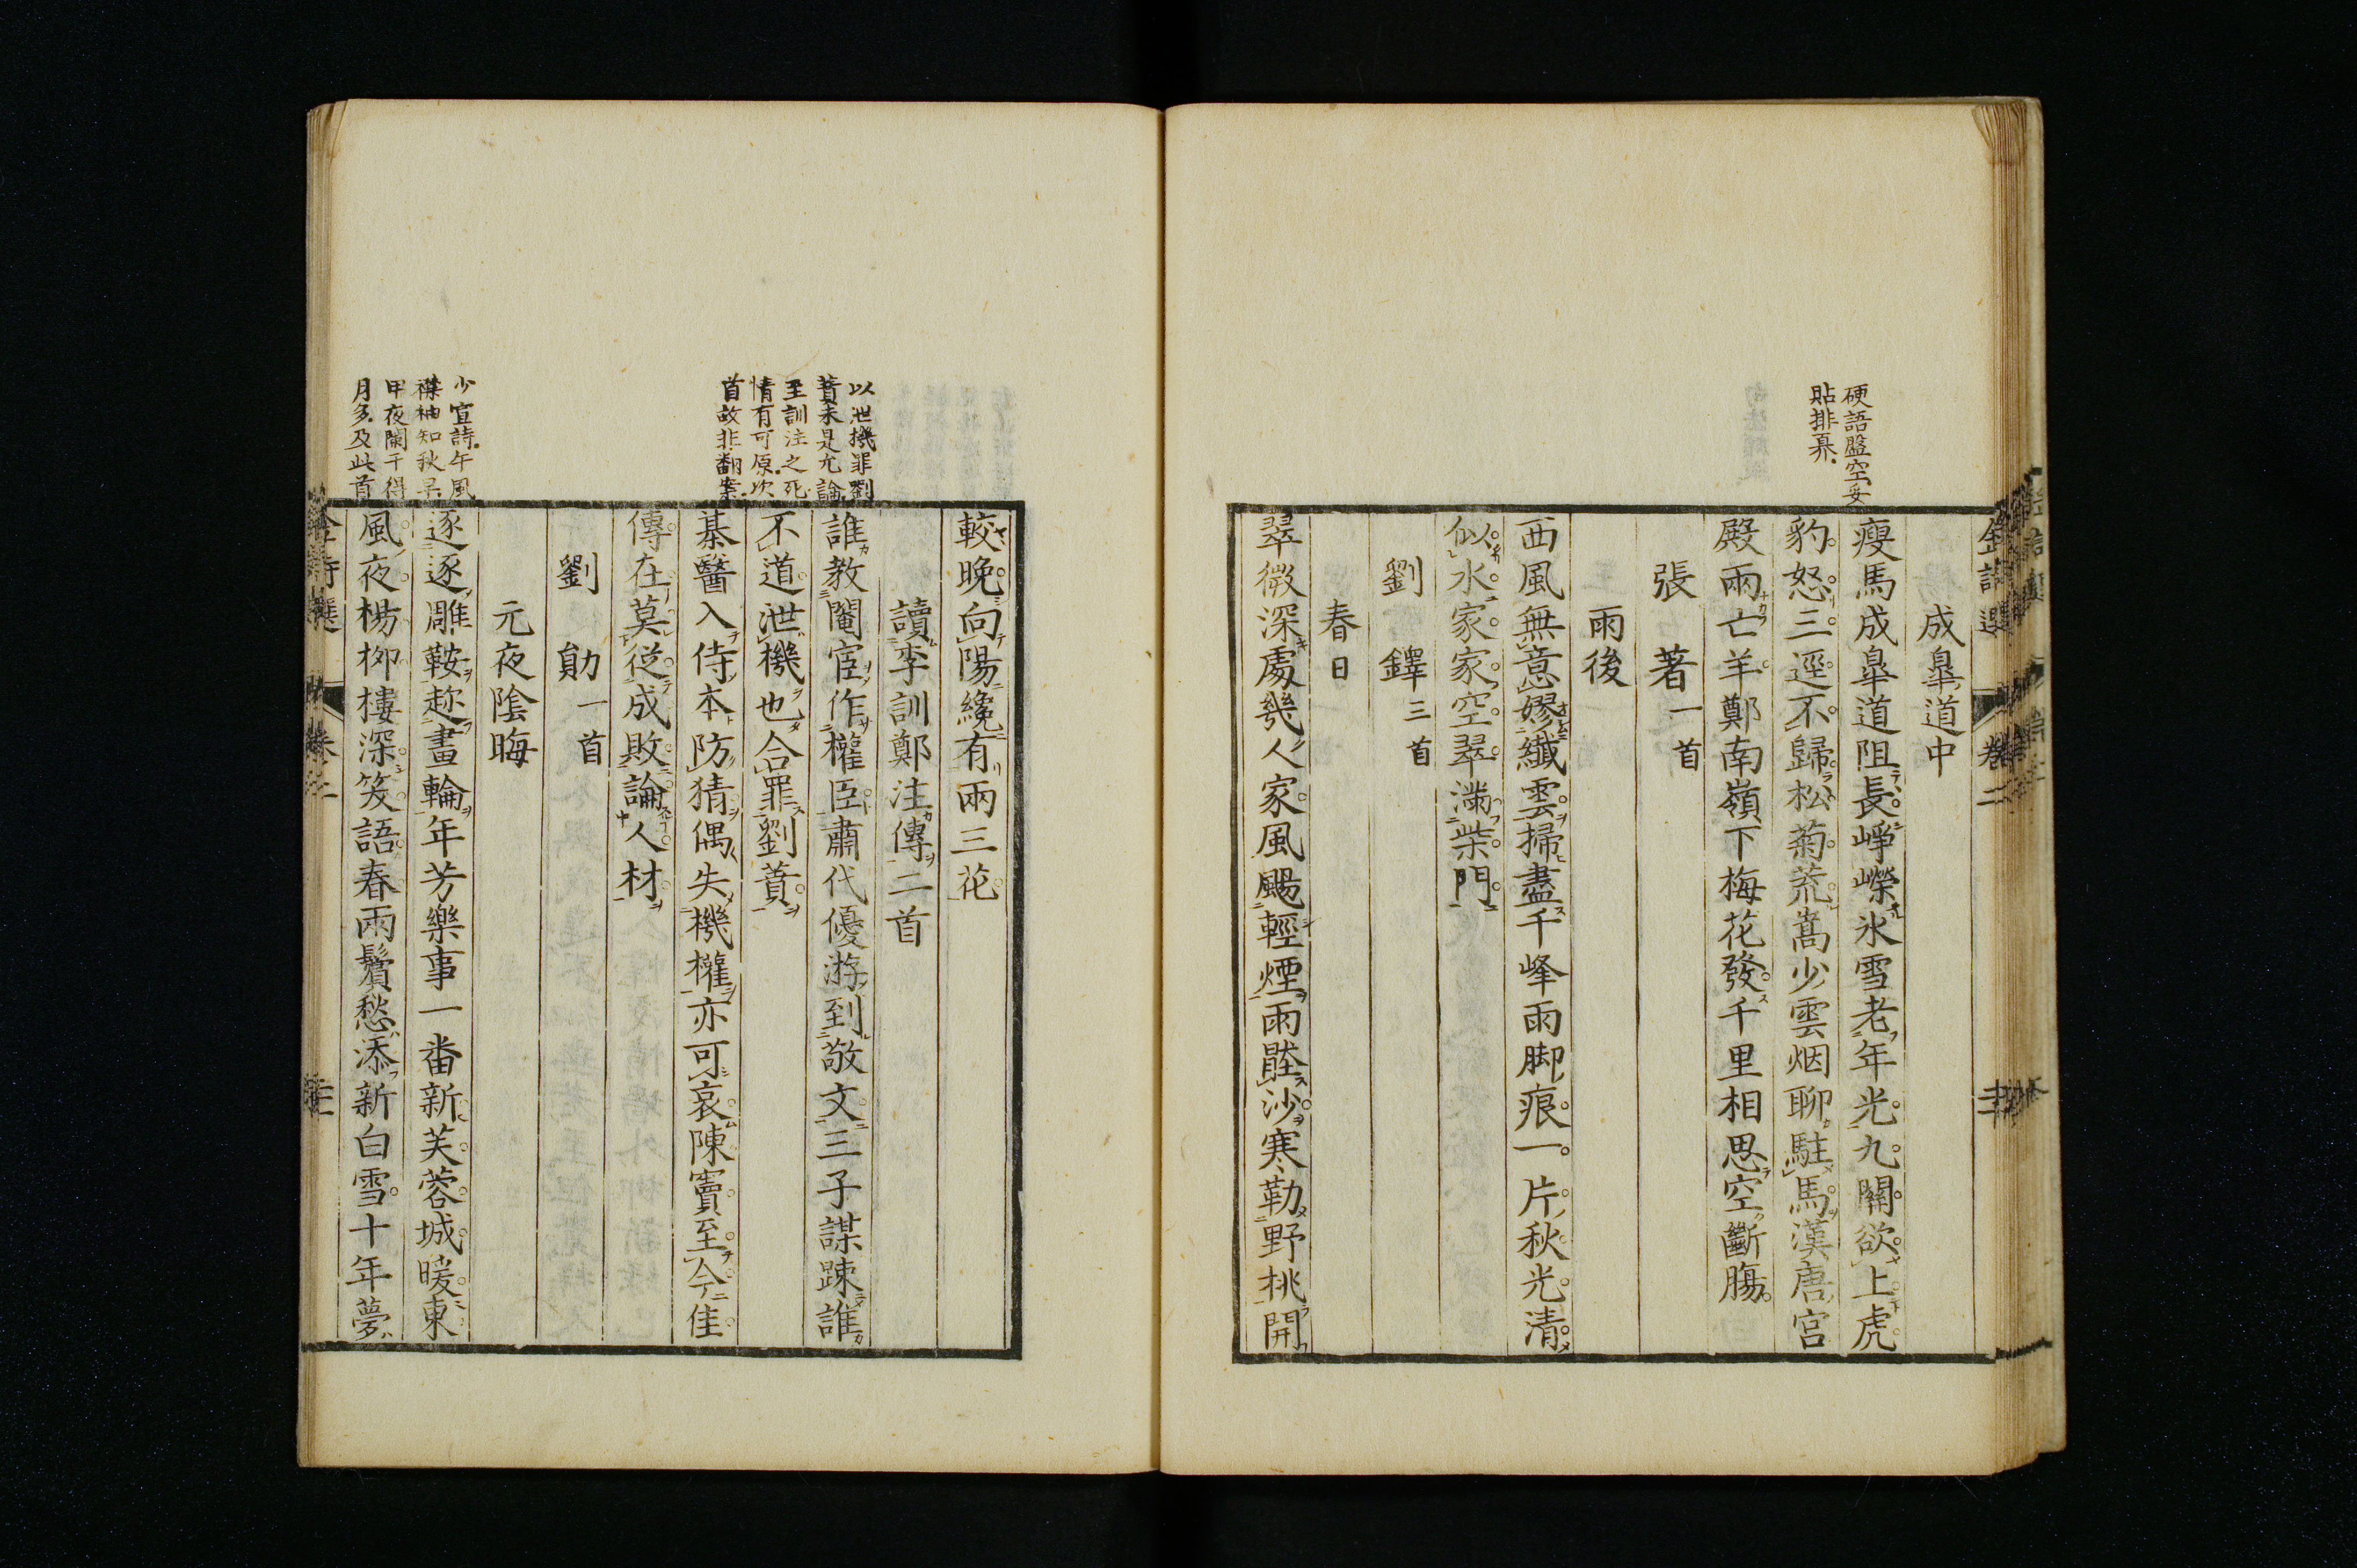 硬語盤空妥
貼排奡
成臯道中
瘦馬成臯道阻長崢嶸氷雪老年光九關欲上虎
豹怒三逕不歸松菊荒嵩少雲烟聊駐馬漢唐宮
殿兩亡羊鄭南嶺下梅花發千里相思空斷腸
張著一首
雨後
西風無意嫪纎雲掃盡千峰雨脚痕一片秋光清
似水家家空翠滿柴門
劉鐸三首
春日
翠微深處幾人家風颺輕煙雨㽀沙寒勒野桃開
以泄機罪劉
蕡未是允論
至訓注之死
情有可原次
首故非翻案
少宣詩午風
襟袖知秋早
甲夜闌干得
月多及此首
較晚向陽纔有兩三花
讀李訓鄭注傳二首
誰教閹宦作權臣肅代優游到敬文三子謀踈誰
不道泄機也合罪劉蕡
棊醫入侍本防猜偶失機權亦可哀陳竇至今佳
傳在莫從成敗論人材
劉勛一首
元夜陰晦
逐逐雕鞍趂畫輪年芳樂事一番新芙蓉城暖東
風夜楊柳樓深笑語春兩鬢愁添新白雪十年夢